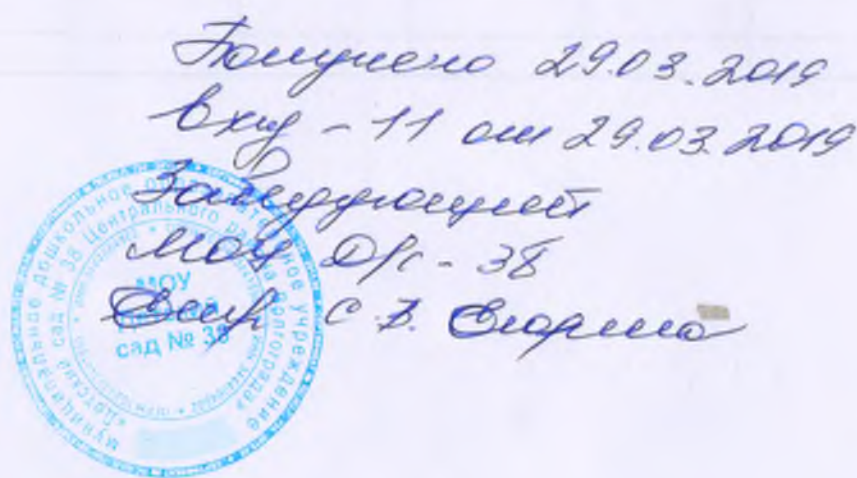 Получено 29.03.2019
вход - 11 от 29.03.2019
Заведующей
МОУ Д/с - 38
С.В.
муниципальное дошкольное образовательное учреждение
«Детский сад № 38 Центрального района Волгограда»
МОУ
сад № 38